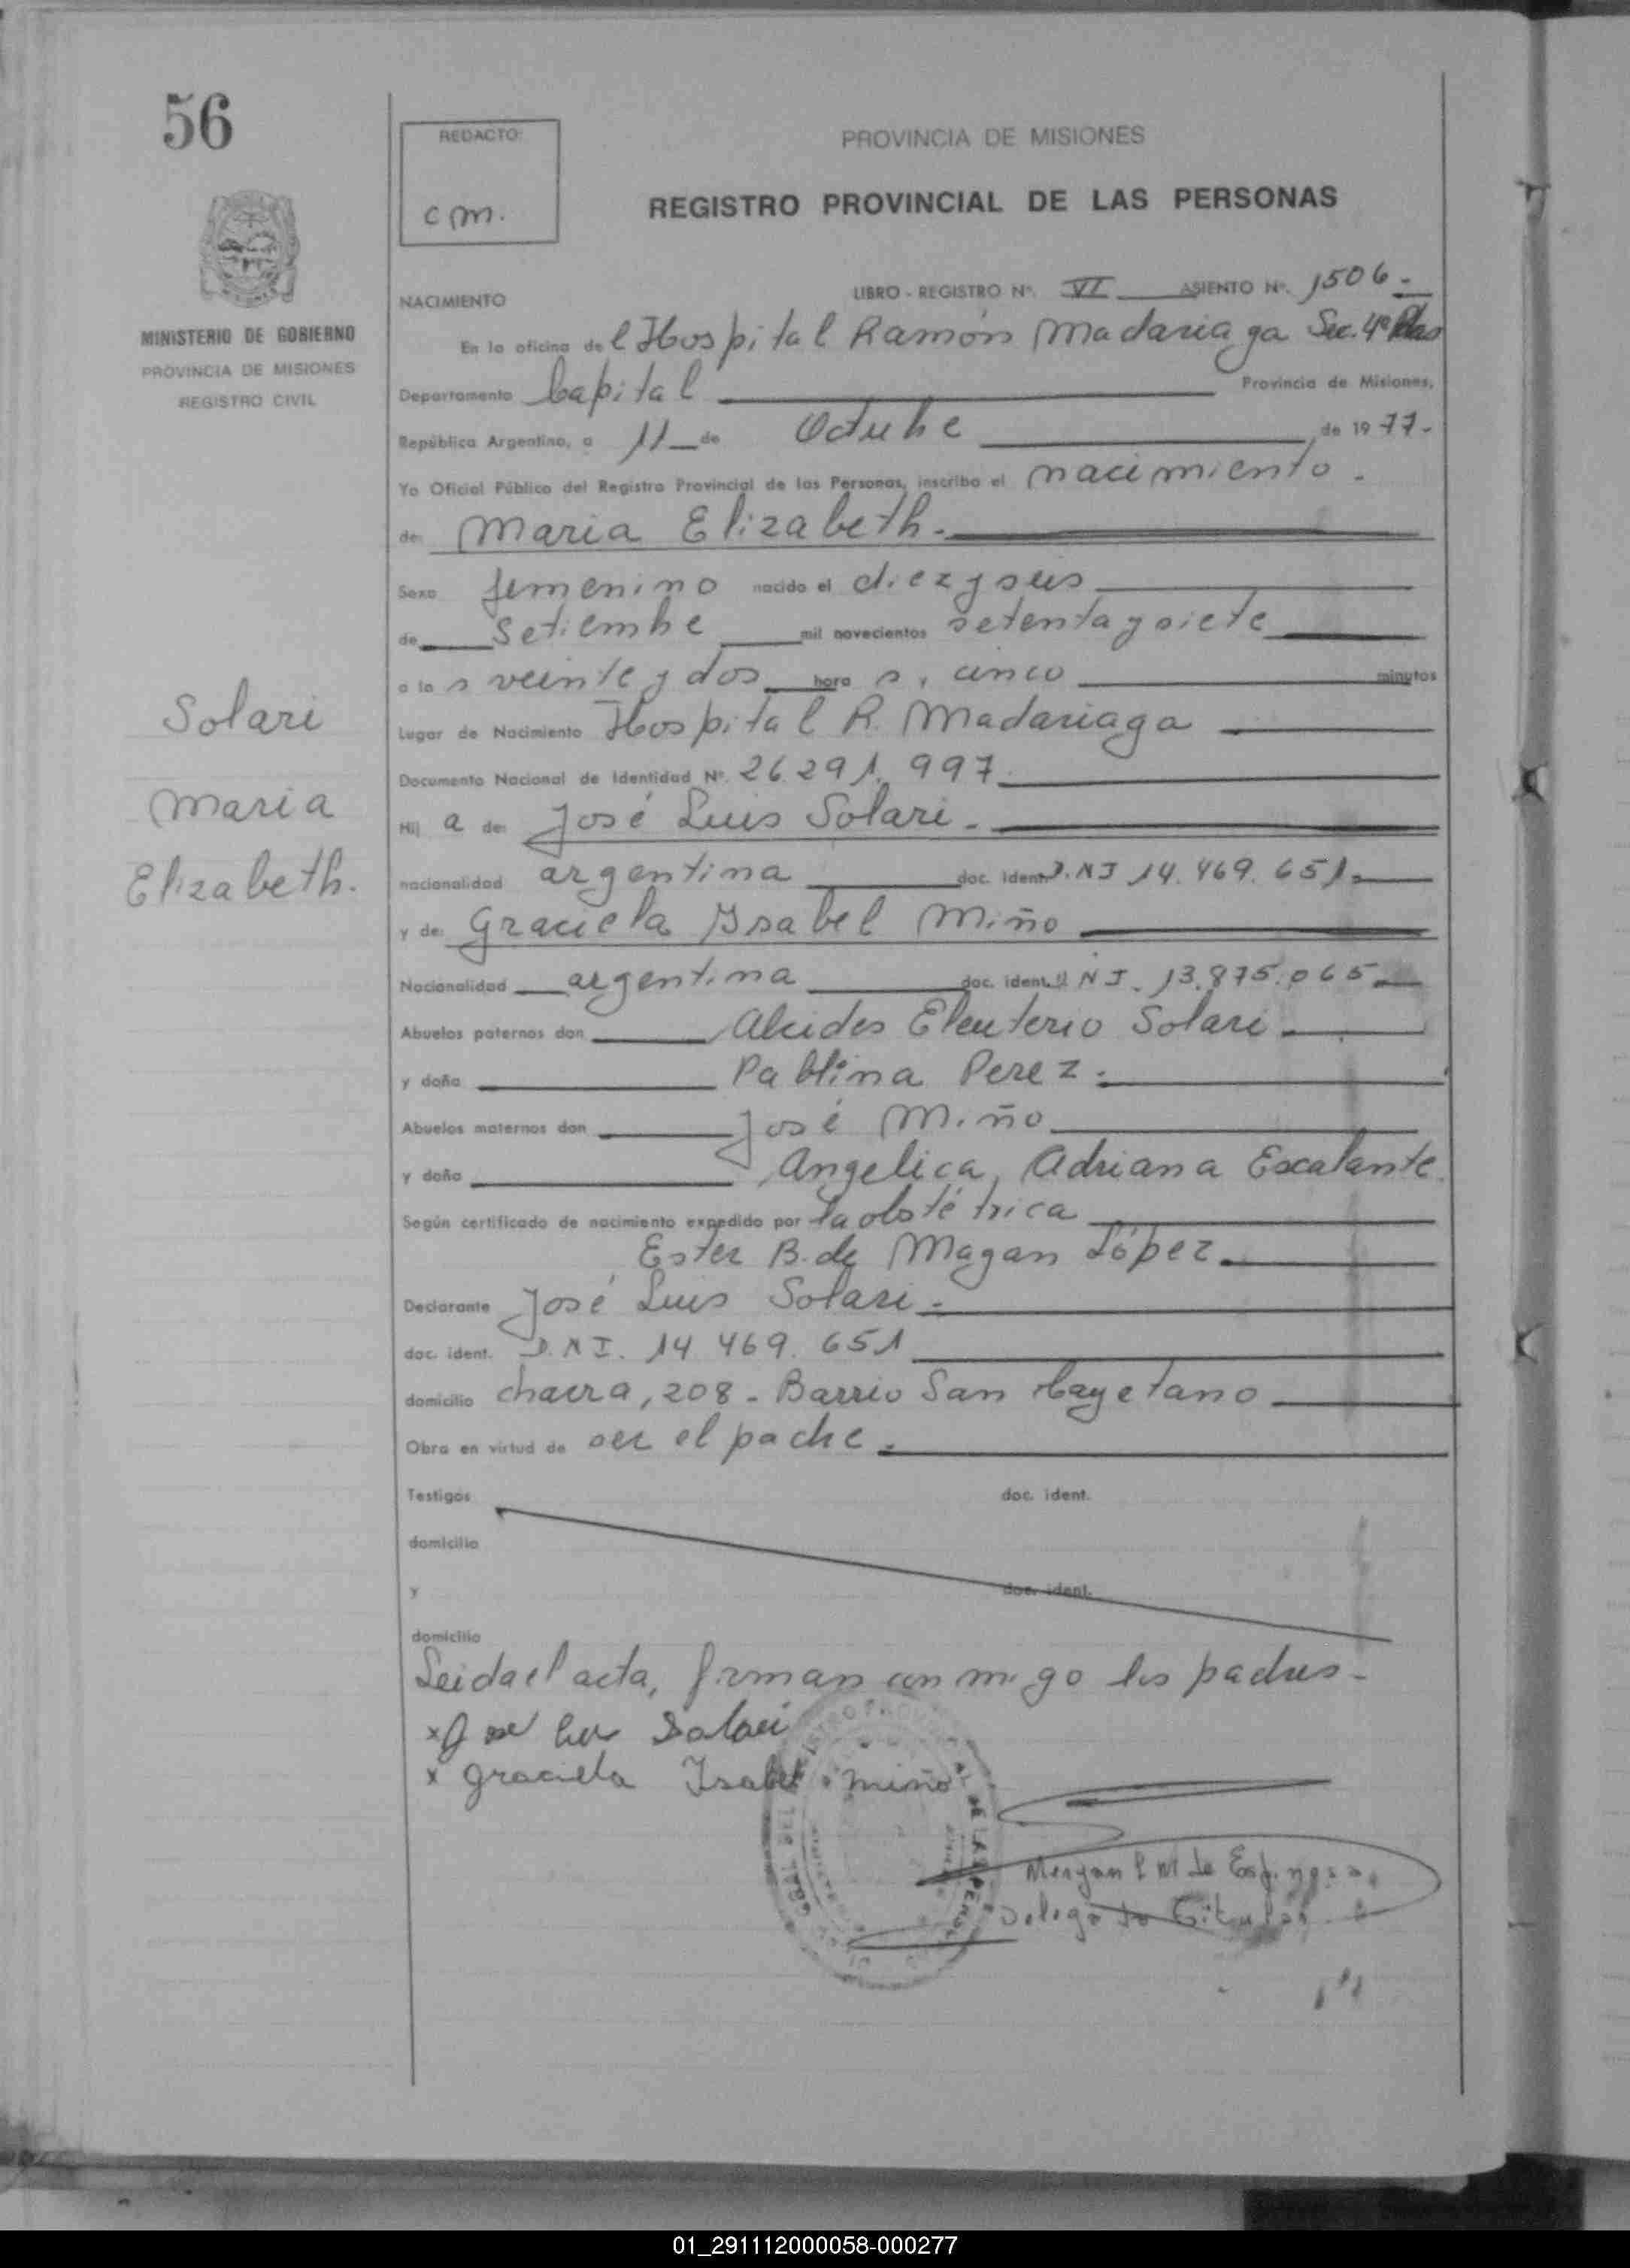 56
REDACTO:
c m.
PROVINCIA DE MISIONES
REGISTRO PROVINCIAL DE LAS PERSONAS
MINISTERIO DE GOBIERNO
PROVINCIA DE MISIONES
REGISTRO CIVIL
NACIMIENTO
LIBRO - REGISTRO Nº. VI ASIENTO Nº. 1506 -
En la oficina del Hospital Ramón Madariaga Sec. 4ª
Departamento Capital Provincia de Misiones,
República Argentina, a 11 de Octubre de 1977.-
Yo Oficial Público del Registro Provincial de las Personas, inscribo el nacimiento.
de: Maria Elizabeth.
Sexo femenino nacido el diez y seis
de Setiembre mil novecientos setenta y siete
a la s veinte y dos hora s, cinco minutos
Lugar de Nacimiento Hospital R. Madariaga
Documento Nacional de Identidad Nº. 26.291.997.
Solari
Maria
Elizabeth.
Hij a de: José Luis Solari.
nacionalidad argentina doc. ident. D.NI 14.469.651.
y de: Graciela Ysabel Miño
Nacionalidad argentina doc. ident. D NI. 13.875.065.
Abuelos paternos don Alcides Eleuterio Solari
y doña Pablina Perez.
Abuelos maternos don José Miño
y doña Angelica, Adriana Escalante.
Según certificado de nacimiento expedido por la obstétrica
Ester B. de Magan López.
Declarante José Luis Solari.
doc. ident. D.NI. 14 469. 651
domicilio chacra, 208 - Barrio San Cayetano
Obra en virtud de ser el padre.
Testigos doc. ident.
domicilio
y doc. ident.
domicilio
Leida el acta, firman conmigo los padres.-
x José Luis Solari
x Graciela Isabel Miño
de Espinosa
Delegado Titular
01_291112000058-000277